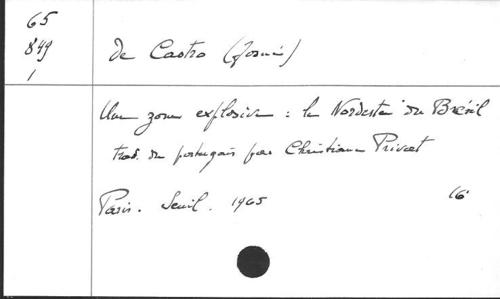 65
849
1
de Castro (Josué)
Une zone explosive : le Nordeste du Brésil
trad. du portugais par Christiane Privat
Paris. Seuil. 1965 16°